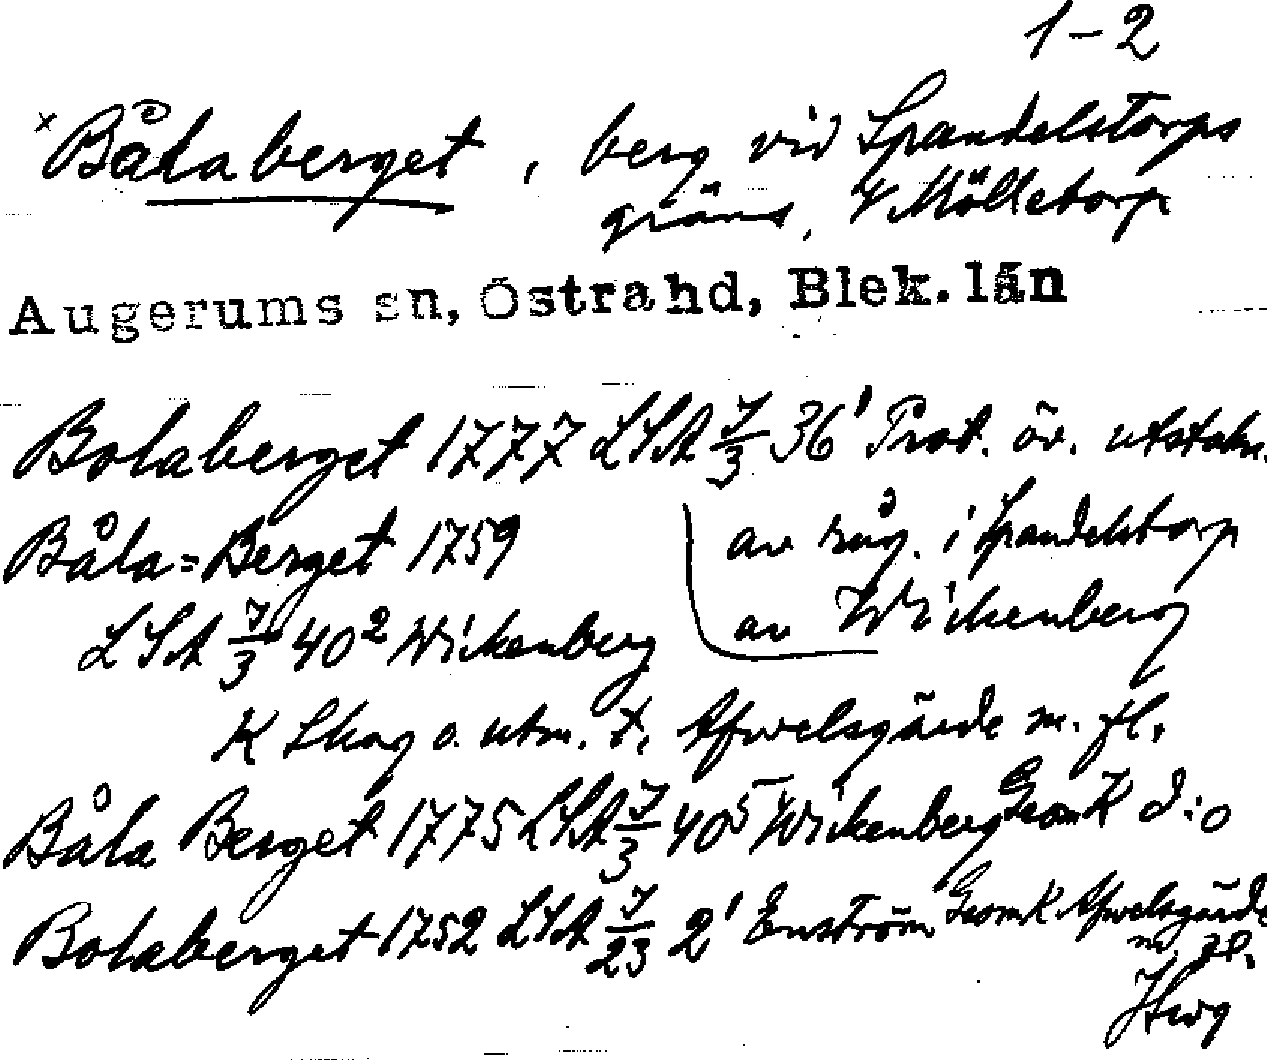 1-2
×Bålaberget, berg vid Spandelstorps
gräns, V Mölletorp
Augerums sn, Östrahd, Blek. län
Bolaberget 1777 LSA J/3 36¹ Prot. öv. utstakn.
av råg. i Spandelstorp
av Wickenberg
Båla=Berget 1759
LSA J/3 40² Wickenberg
K Skog o. utm. t. Afvelsgärde m. fl.
Båla Berget 1775 LSA J/3 40⁵ Wickenberg GeomK d:o
Bolaberget 1752 LSA J/23 2¹ Enström GeomK Afvelsgärde
m. fl.